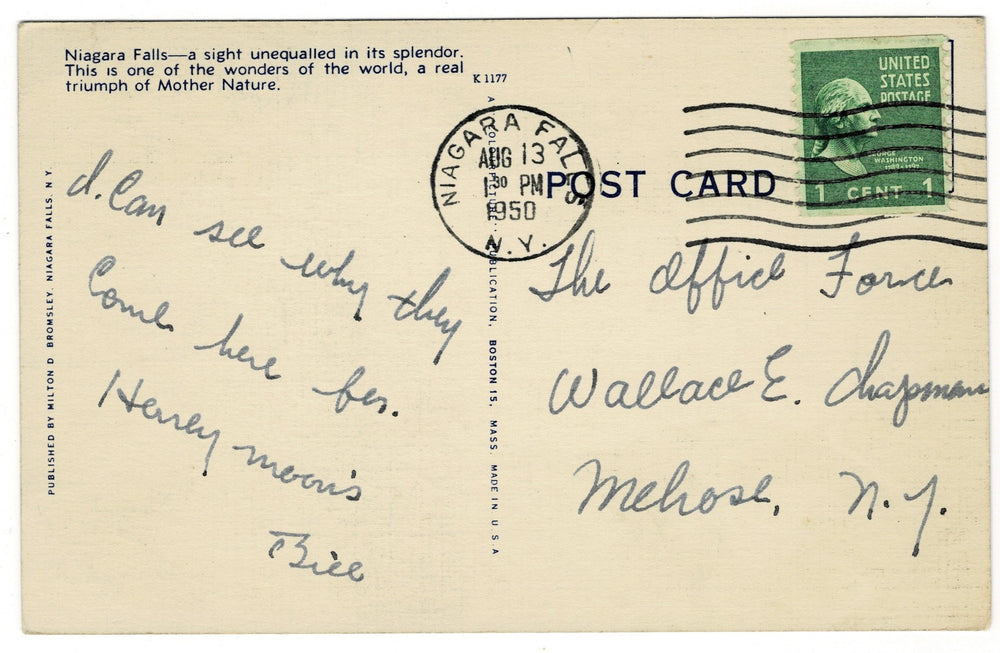 Niagara Falls—a sight unequalled in its splendor.
This is one of the wonders of the world, a real
triumph of Mother Nature.
K 1177
PUBLISHED BY MILTON D BROMSLEY, NIAGARA FALLS, N. Y.
I. Can
see why they
Come here for.
Honey moons
Bill
PUBLICATION, BOSTON 15, MASS. MADE IN U S A
NIAGARA FALLS
AUG 13
1 30 PM
1950
N.Y.
POST CARD
UNITED
STATES
POSTAGE
GEORGE
WASHINGTON
1789-1797
1 CENT 1
The Office Force
Wallace E. Chapman
Melrose, N. Y.